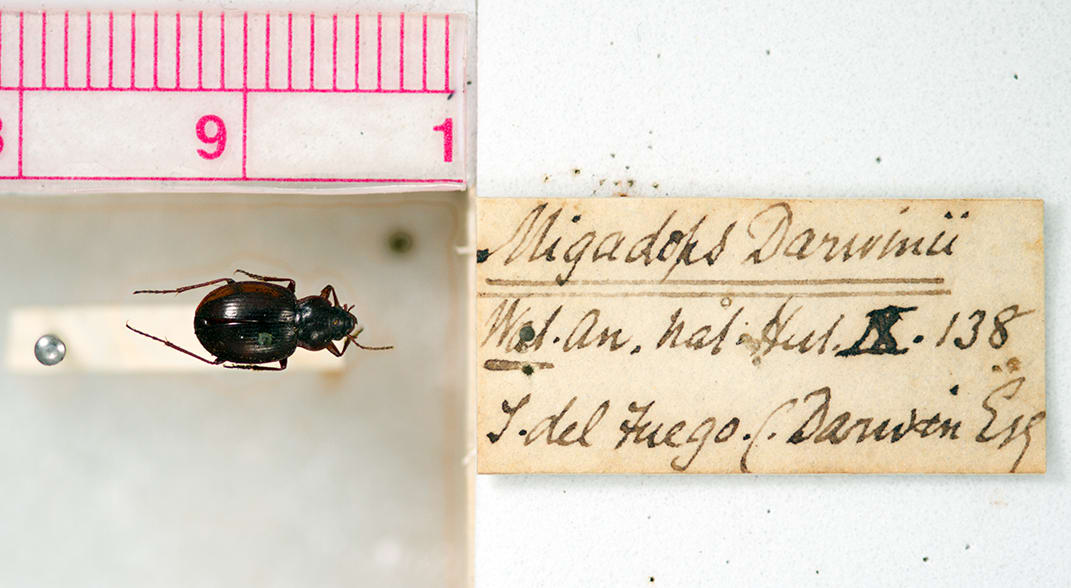 9 1
Migadops Darwinii
Wat. An. Nat. Hist. IX. 138
T. del Fuego. C. Darwin Esq